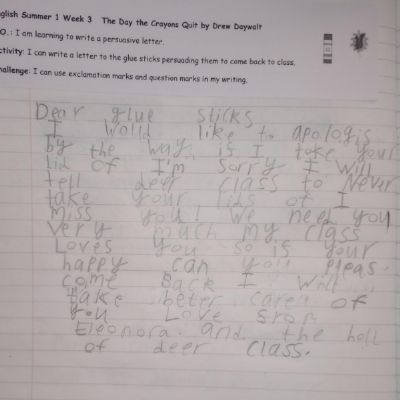 glish Summer 1 Week 3 The Day the Crayons Quit by Drew Daywalt
O.: I am learning to write a persuasive letter.
ctivity: I can write a letter to the glue sticks persuading them to come back to class.
hallenge: I can use exclamation marks and question marks in my writing.
Dear glue sticks
I Wolld like to apologis
by the way is I take your
lid of I'm sorry I Will
tell deer class to Never
take your lids of I
Miss you! We need you
very much my class
Loves you so is your
happy can you pleas.
come Back I will
take beter caren of
you Love from
Eleonora. and the holl
of deer class.